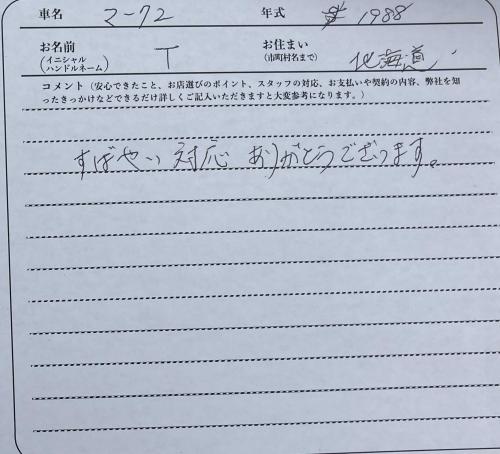 車名 マーク2 年式 1988
お名前 (イニシャル ハンドルネーム) T お住まい (市町村名まで) 北海道
コメント（安心できたこと、お店選びのポイント、スタッフの対応、お支払いや契約の内容、弊社を知
ったきっかけなどできるだけ詳しくご記入いただきますと大変参考になります。）
すばやい対応ありがとうございます。